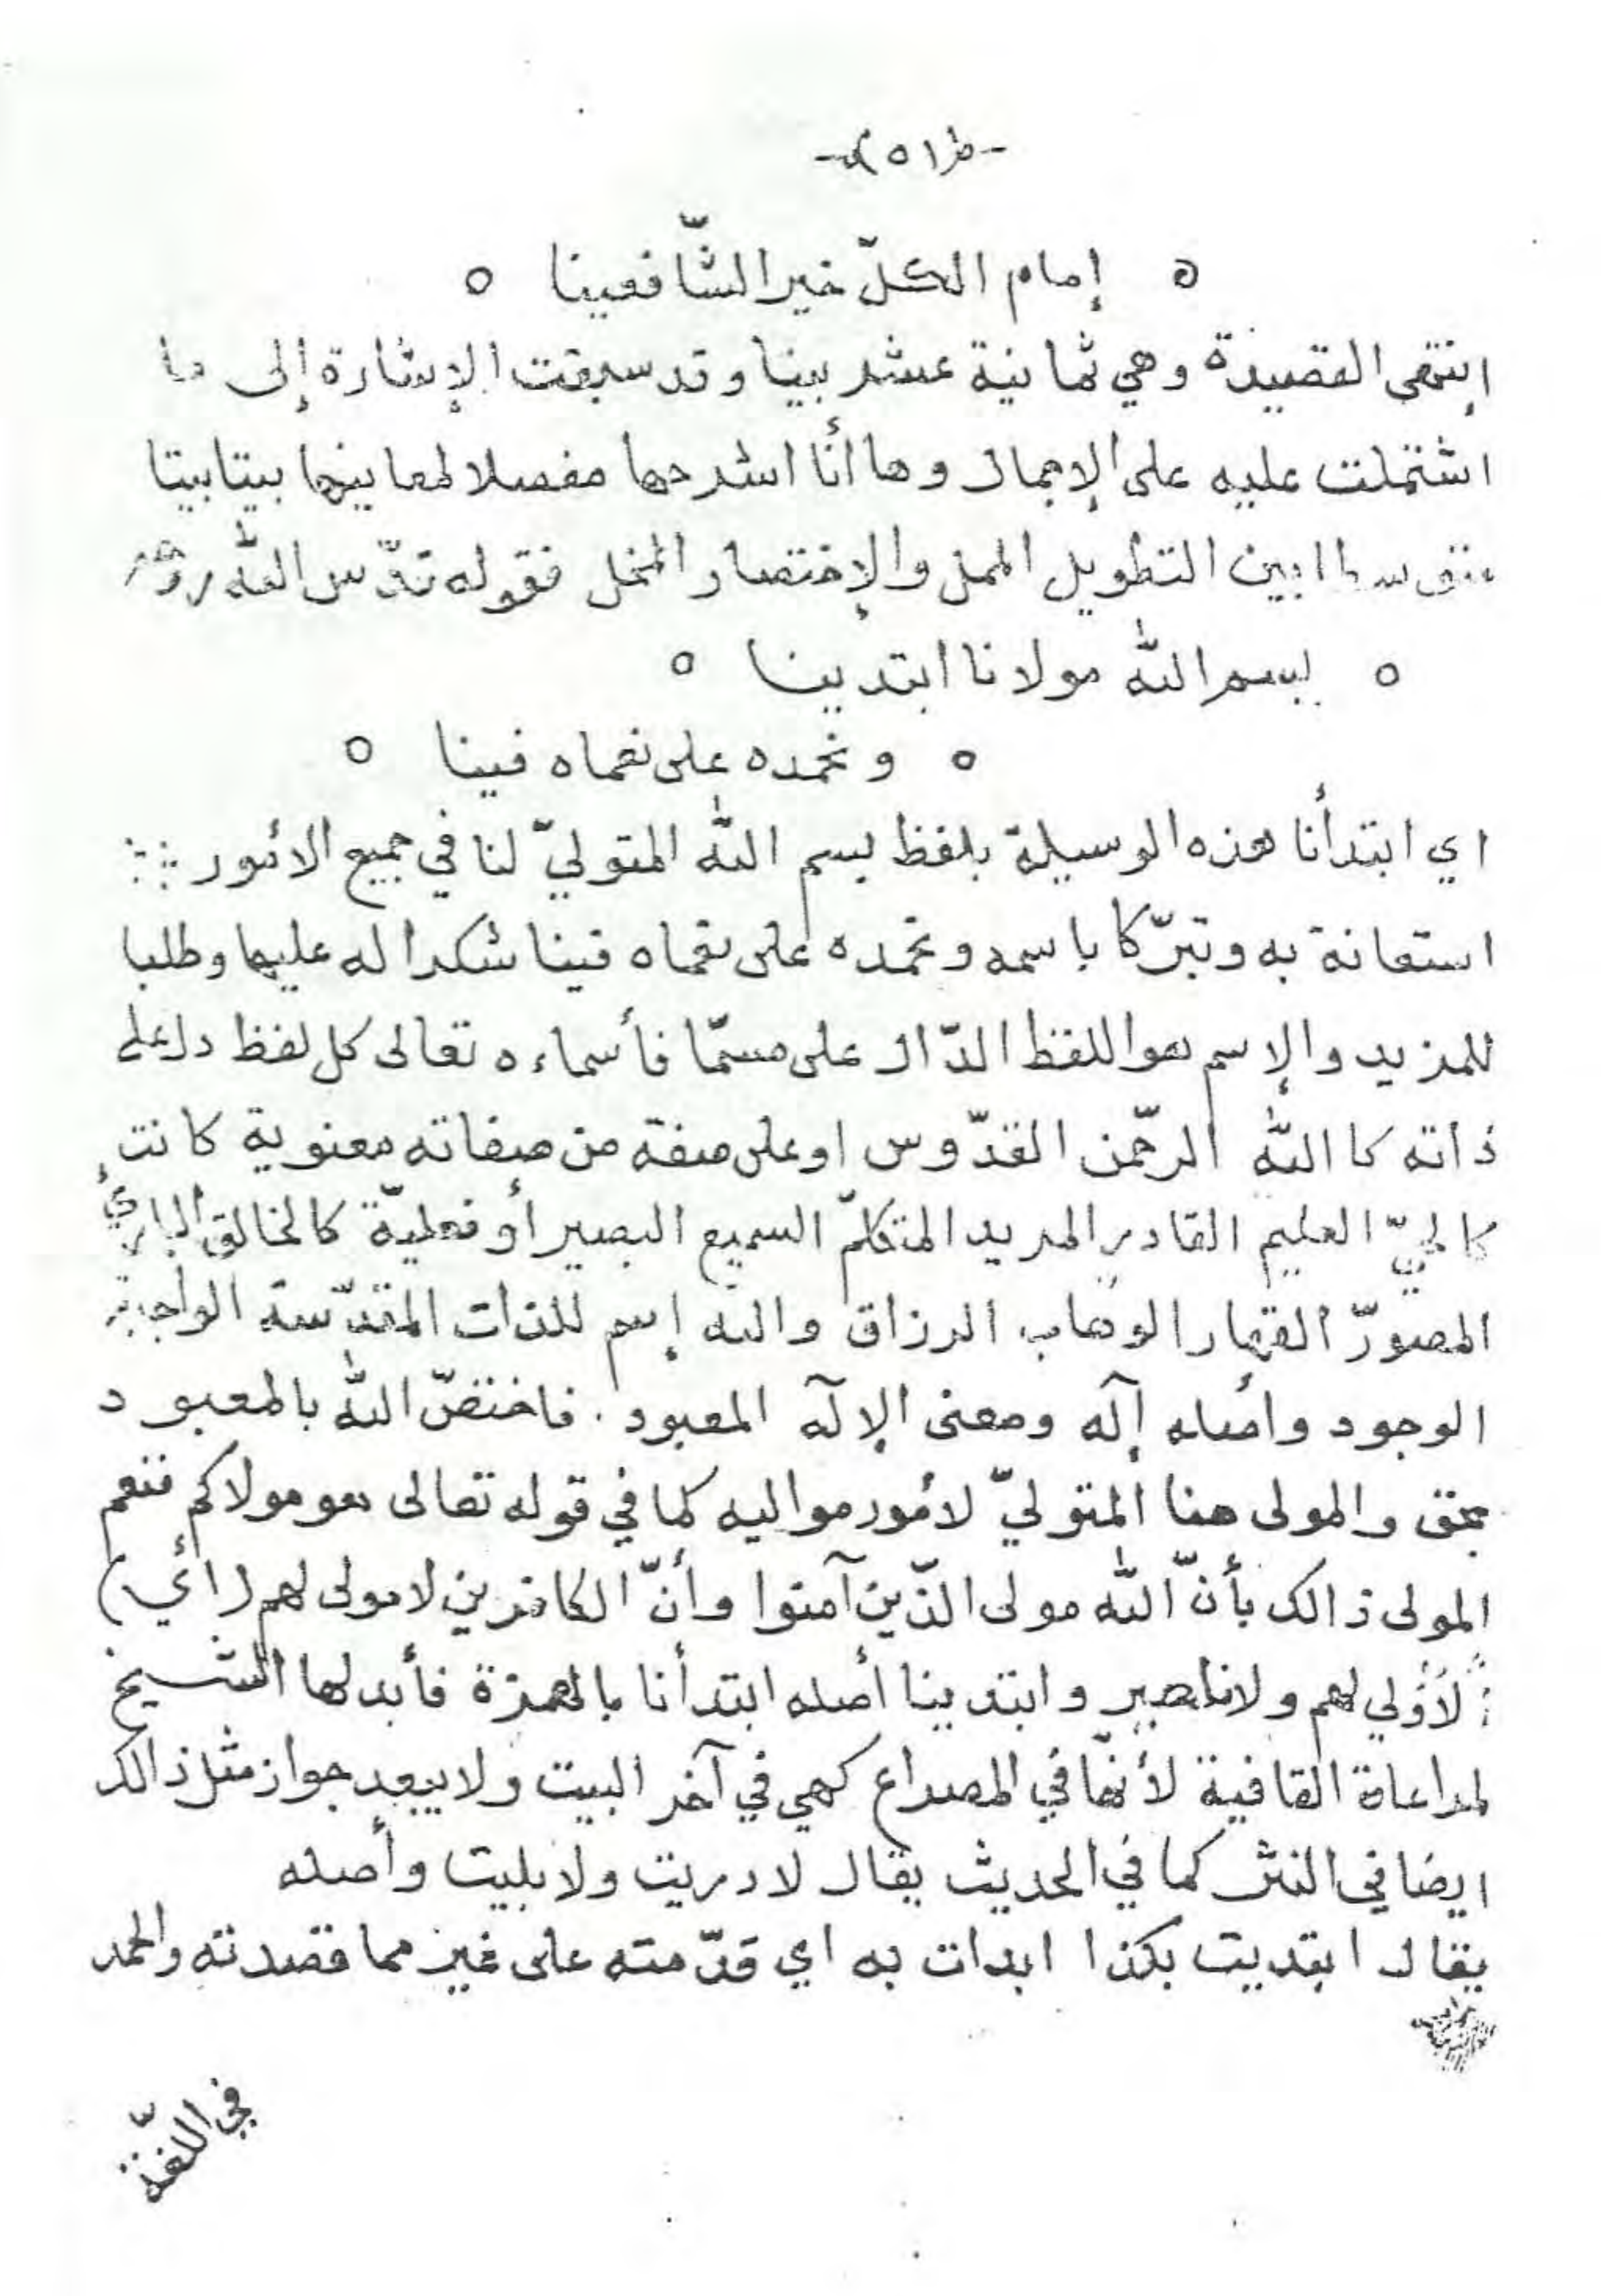 -(١٥)-
ه إمام الكلّ خير الشّافعينا ه
إنتهى القصيدة وهي ثمانية عشر بيتا وقد سبقت الإشارة إلى ما
اشتملت عليه على الإجمال وها أنا اشرحها مفصلا لمعاينها بيتا بيتا
متوسطا بين التطويل الممل والإختصار المخل فقوله قدّس الله روحه
ه بسم الله مولانا ابتدينا ه
ه ونحمده على نعماه فينا ه
اي ابتدأنا هذه الوسيلة بلفظ بسم الله المتوليّ لنا في جميع الأمور
استعانة به وتبرّكا باسمه ونحمده على نعماه فينا شكرا له عليها وطلبا
للمزيد والإسم هو اللفظ الدّال على مسمّا فأسماءه تعالى كل لفظ دل على
ذاته كا الله الرحّمن القدّوس او على صفة من صفاته معنوية كانت
كالحيّ العليم القادر المريد المتكلمّ السميع البصير أو فعليّة كالخالق البارئ
المصورّ القهار الوهاب الرزاق والله إسم للذات المقدّسة الواجبة
الوجود وأصله إآله ومعنى الإآله المعبود . فاختصّ الله بالمعبود
بحق والمولى هنا المتوليّ لأمور مواليه كما في قوله تعالى هو مولاكم فنعم
المولى ذالك بأنّ الله مولى الذّين آمنوا وأنّ الكافرين لا مولى لهم (أي)
لا ولي لهم ولا ناصير وابتدينا أصله ابتدأنا بالهمزة فأبدلها الشيخ
لمراعاة القافية لأنهّا في المصراع كهي في آخر البيت ولا يبعد جواز مثل ذالك
ايضا في النثر كما في الحديث يقال لا دريت ولا بليت وأصله
يقال ابتديت بكذا ابدات به اي قدّمته على غير مما قصدته والحمد
في اللّغة